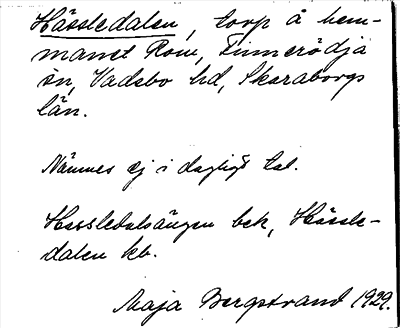 Hässledalen, torp å hem-
manet Rom, Finnerödja
sn, Vadsbo hd, Skaraborgs
län.
Nämnes ej i dagligt tal.
Hessledalsängen bek, Hässle-
dalen kb.
Maja Bergstrand 1929.